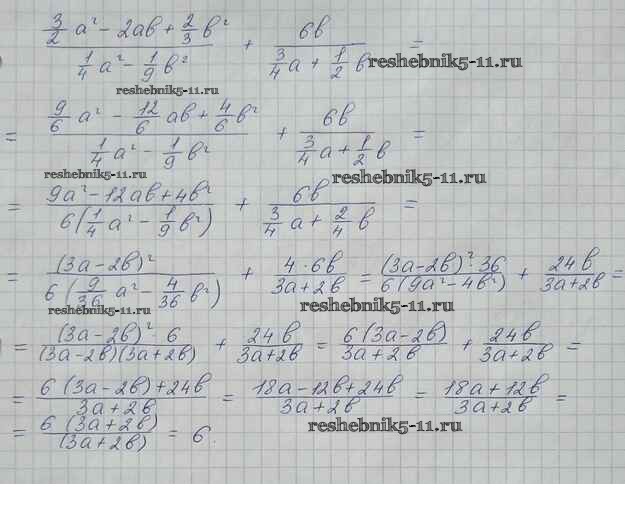 (3/2 a² - 2ab + 2/3 b²)/(1/4 a² - 1/9 b²) + 6b/(3/4 a + 1/2 b) =
reshebnik5-11.ru
reshebnik5-11.ru
= (9/6 a² - 12/6 ab + 4/6 b²)/(1/4 a² - 1/9 b²) + 6b/(3/4 a + 1/2 b) =
reshebnik5-11.ru
reshebnik5-11.ru
= (9a² - 12ab + 4b²)/(6(1/4 a² - 1/9 b²)) + 6b/(3/4 a + 2/4 b) =
= (3a-2b)²/(6(9/36 a² - 4/36 b²)) + 4·6b/(3a+2b) = (3a-2b)²·36/(6(9a²-4b²)) + 24b/(3a+2b) =
reshebnik5-11.ru
reshebnik5-11.ru
= (3a-2b)²·6/((3a-2b)(3a+2b)) + 24b/(3a+2b) = 6(3a-2b)/(3a+2b) + 24b/(3a+2b) =
= (6(3a-2b)+24b)/(3a+2b) = (18a-12b+24b)/(3a+2b) = (18a+12b)/(3a+2b) =
reshebnik5-11.ru
= 6(3a+2b)/(3a+2b) = 6.